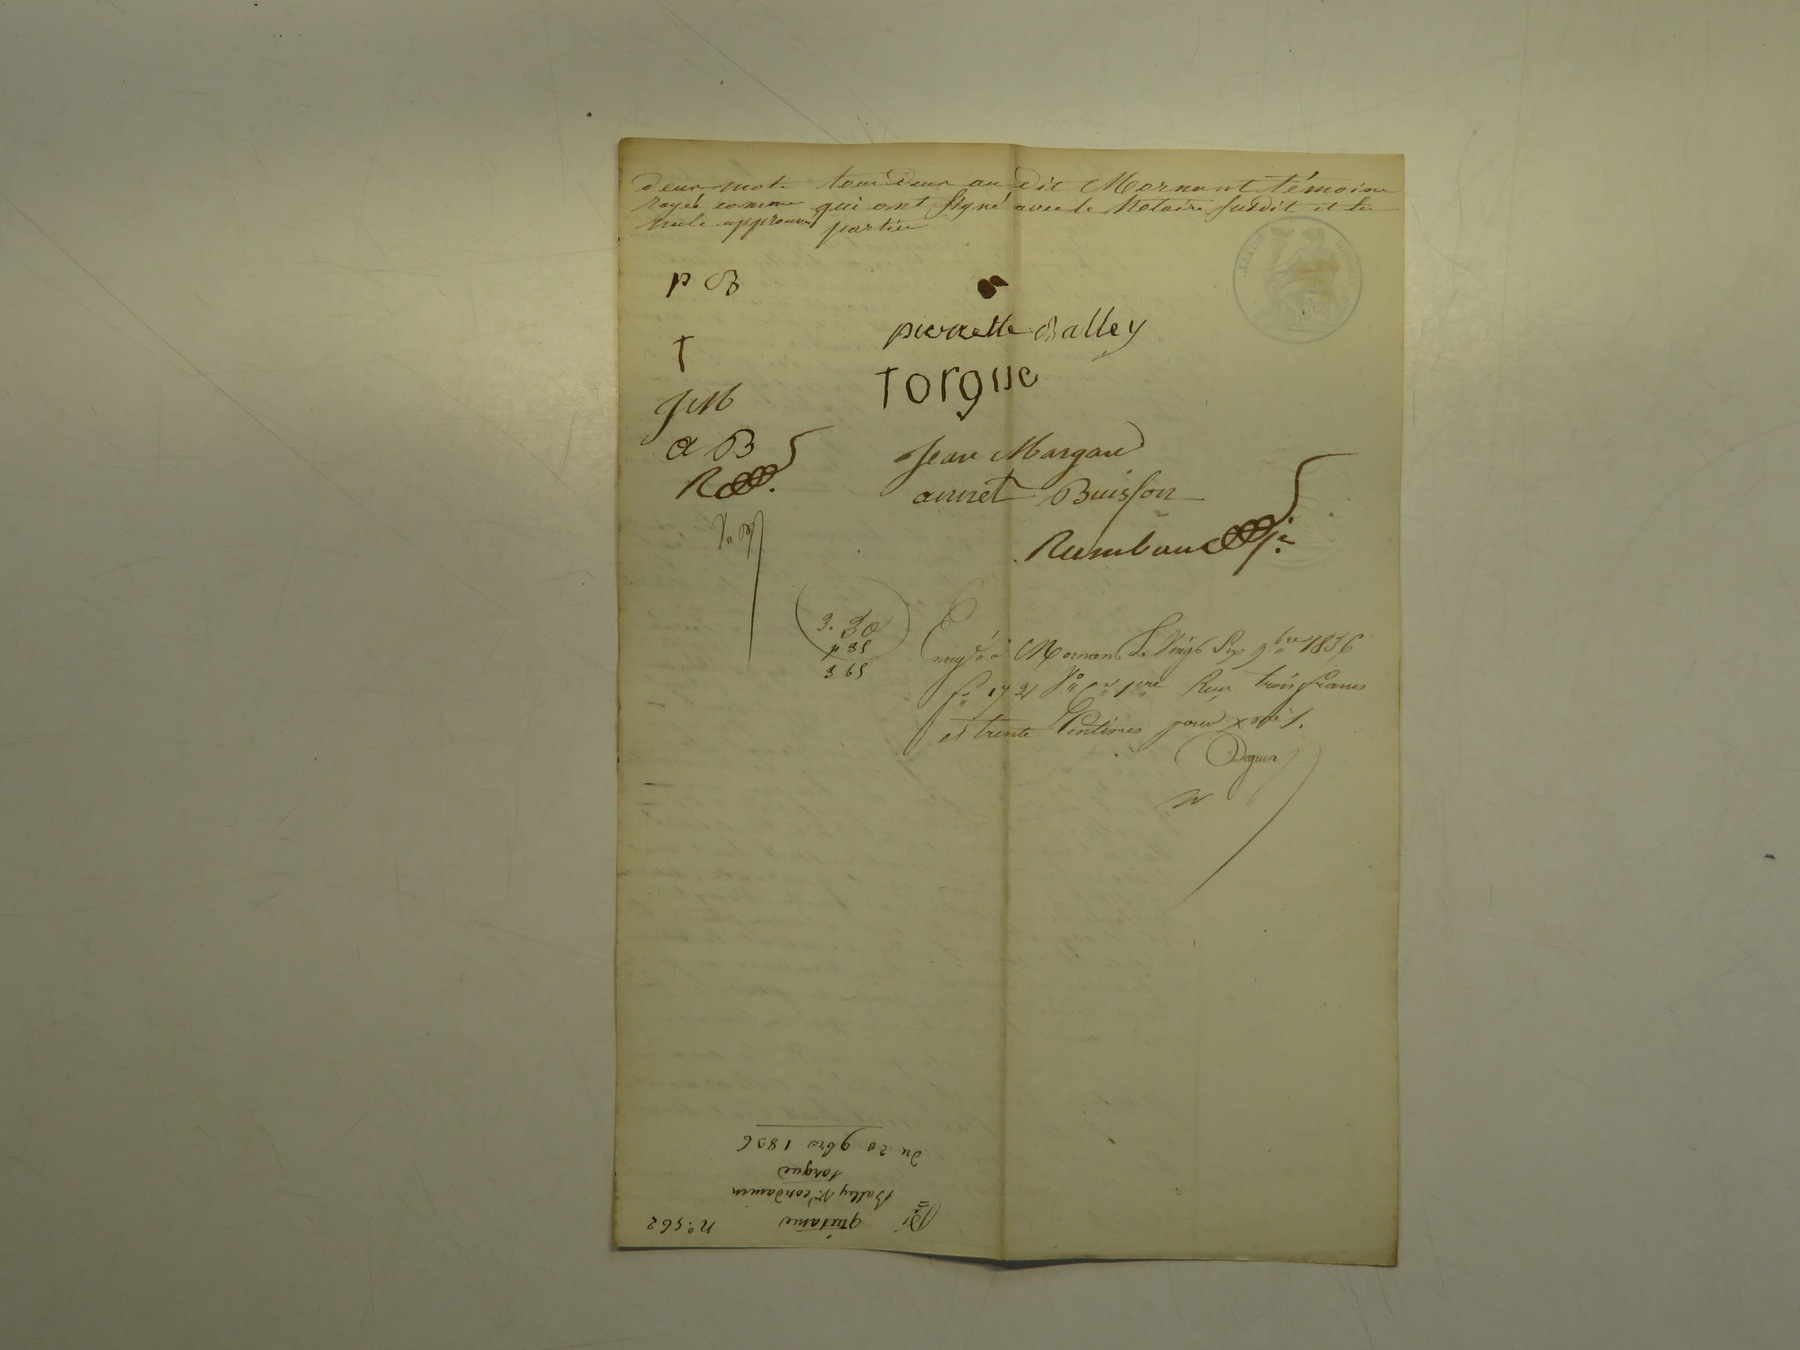 deux mots tous deux au dit Mornant témoins
rayés comme qui ont signé avec le Notaire susdit et les
nuls approuvés parties
p B
pierrette Balley
T
Torgue
J M
Jean Margand
a B
annet Buisson
R
Rambaud
3. 30
33
3 63
Enregt. à Mornant Le Vingt Six 9bre 1836
fo 172 Vo Cn 1ere Reçu trois francs
et trente Centimes pour xme /.
n°. 562
quittance
Balley Ve Condamin
torgue
du 20 9bre 1836